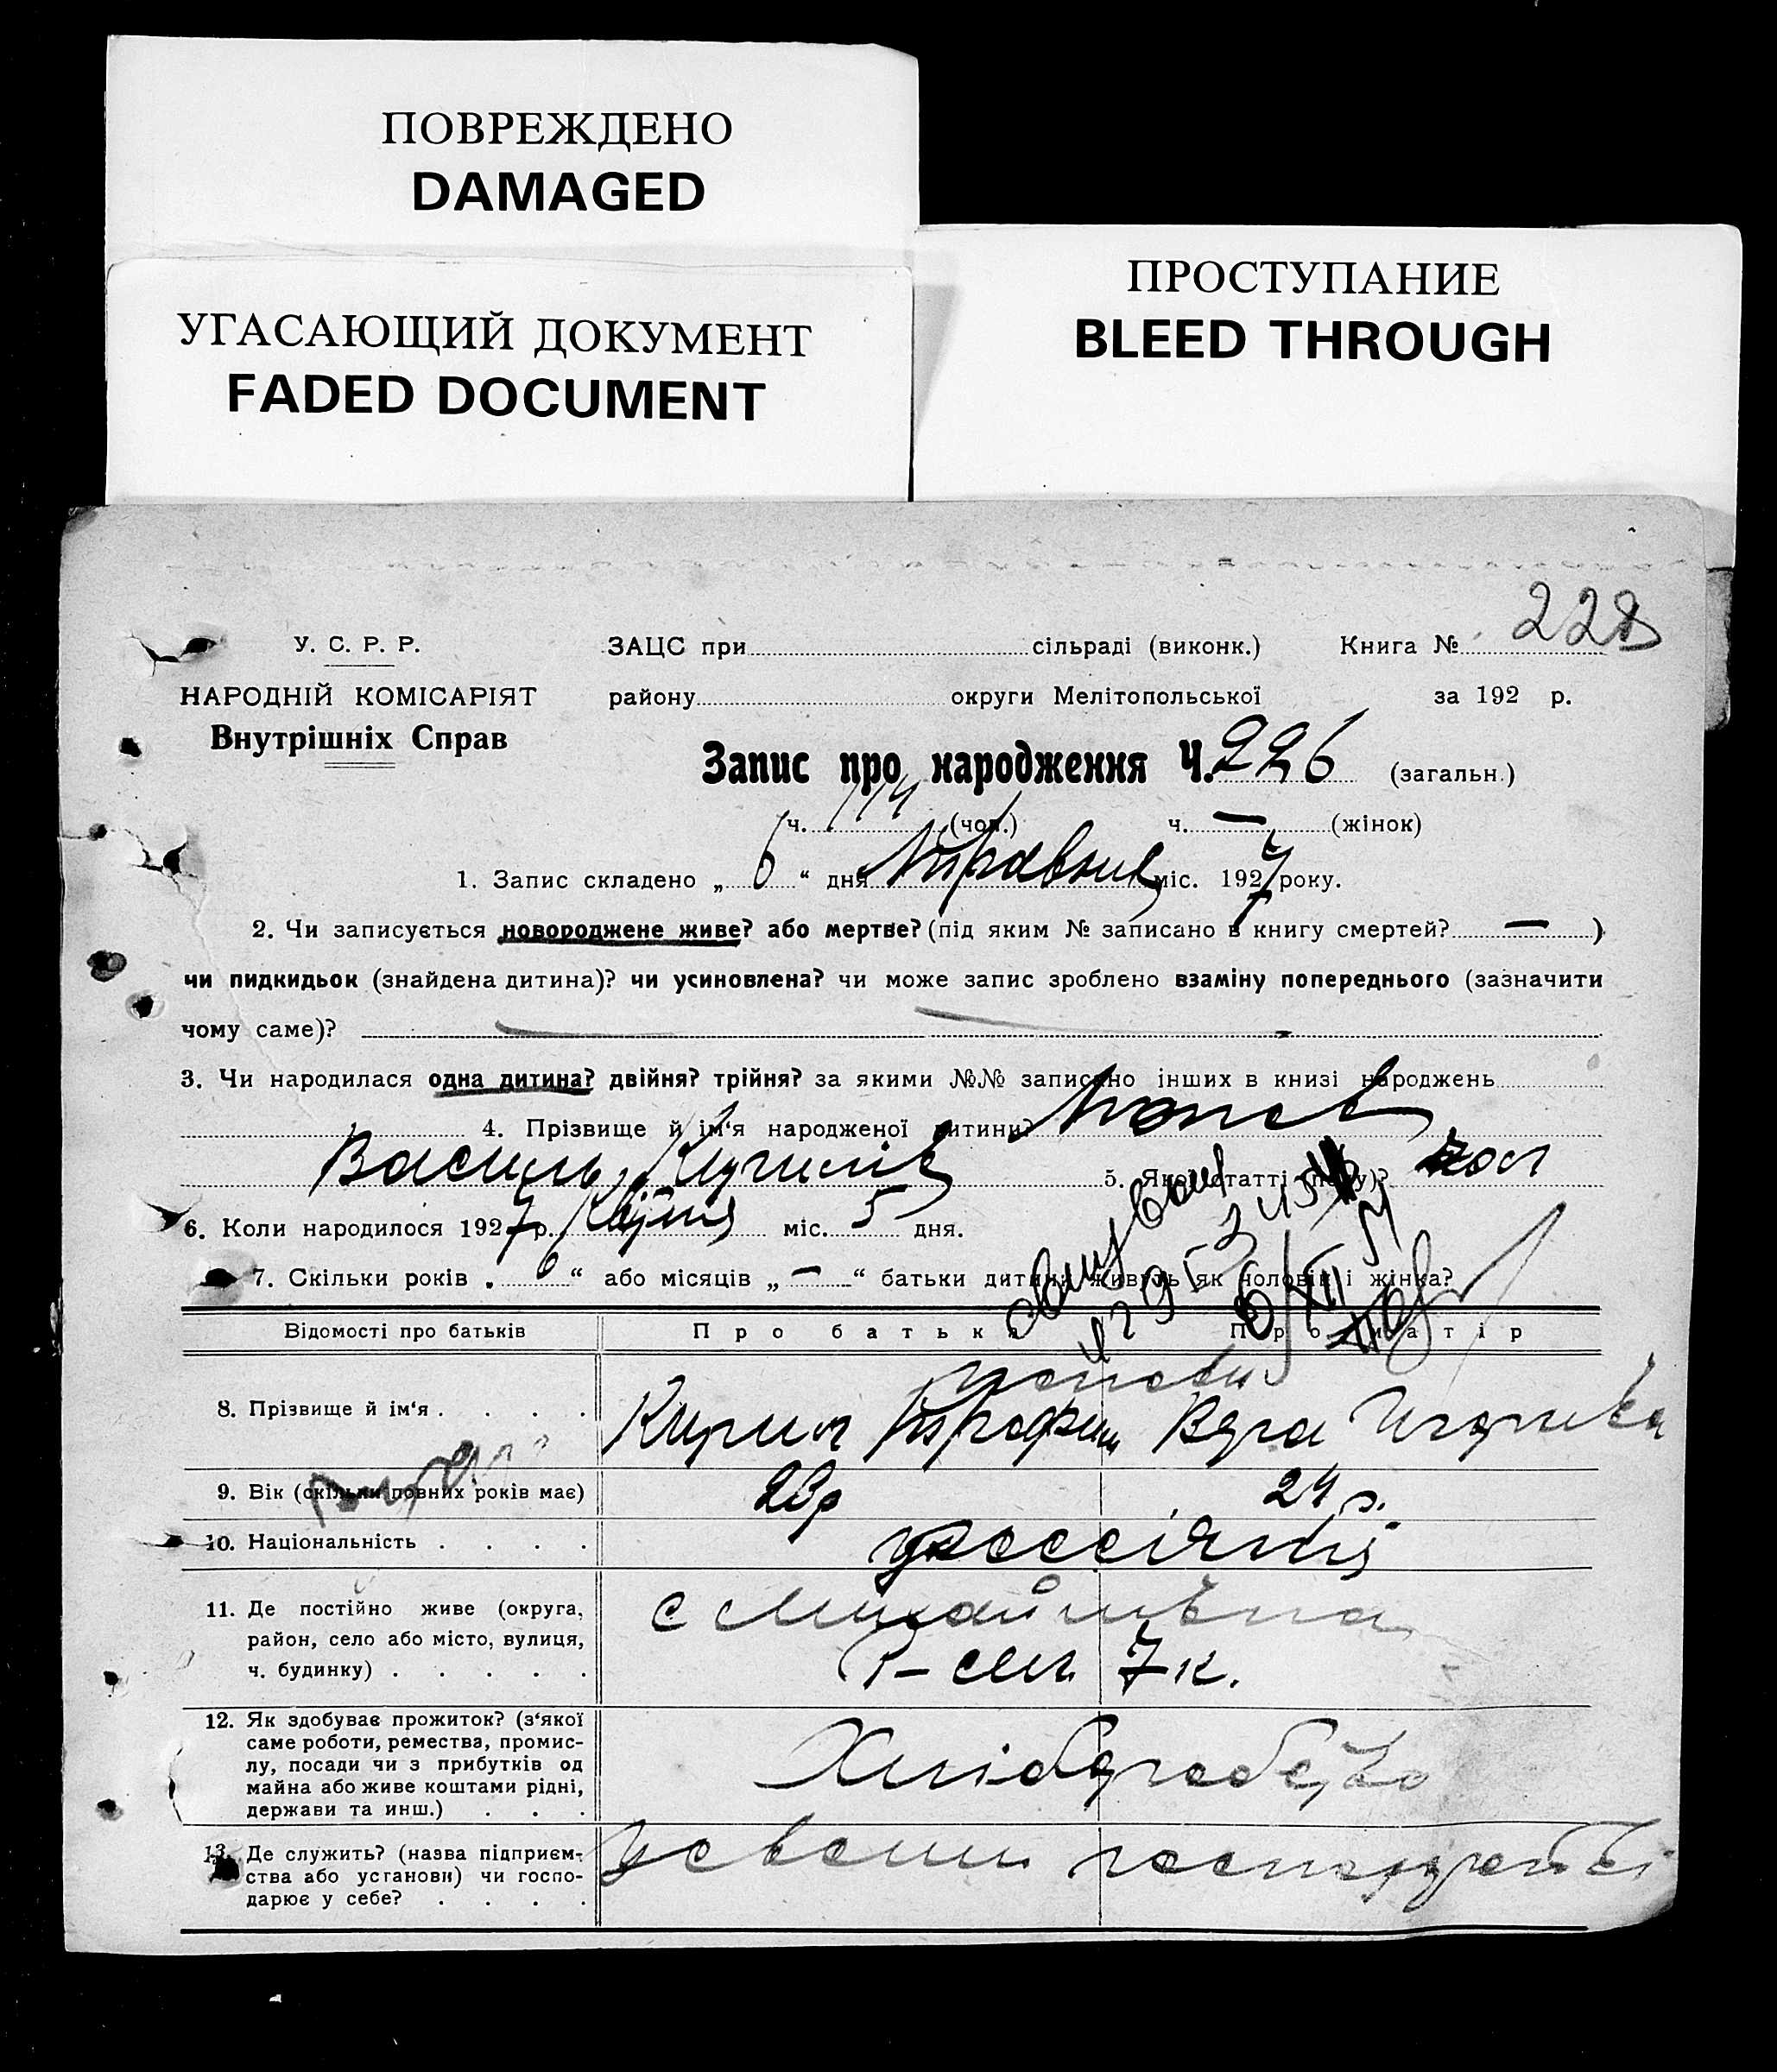 ПОВРЕЖДЕНО
DAMAGED
УГАСАЮЩИЙ ДОКУМЕНТ
FADED DOCUMENT
ПРОСТУПАНИЕ
BLEED THROUGH
228
У. С. Р. Р. ЗАЦС при сільраді (виконк.) Книга №
НАРОДНІЙ КОМІСАРІЯТ району округи Мелітопольської за 192 р.
Внутрішніх Справ
Запис про народження Ч. 226 (загальн.)
ч. 114 (чол.) ч. — (жінок)
1. Запис складено „ 6 “ дня Травня міс. 1927 року.
2. Чи записується новороджене живе? або мертве? (під яким № записано в книгу смертей? — )
чи пидкидьок (знайдена дитина)? чи усиновлена? чи може запис зроблено взаміну попереднього (зазначити
чому саме)?
3. Чи народилася одна дитина? двійня? трійня? за якими №№ записано інших в книзі народжень
4. Прізвище й ім‘я народженої дитини?
Василь 5. Якої статті (полу)? чол
6. Коли народилося 1927 р. Квітня міс. 5 дня.
7. Скільки років „ 6 “ або місяців „ — “ батьки дитини живуть як чоловік і жінка?
Відомості про батьків Про батька Про матір
8. Прізвище й ім‘я . . . .
Кирил Трофим
9. Вік (скільки повних років має) 24 р.
10. Національність . . . .
11. Де постійно живе (округа, с Михайлівка
район, село або місто, вулиця,
ч. будинку) . . . . . 7 к.
12. Як здобуває прожиток? (з‘якої
саме роботи, ремества, промис-
лу, посади чи з прибутків од Хлібороб
майна або живе коштами рідні,
держави та инш.) . . .
13. Де служить? (назва підприєм- у своем
ства або установи) чи госпо-
дарює у себе? . . . .